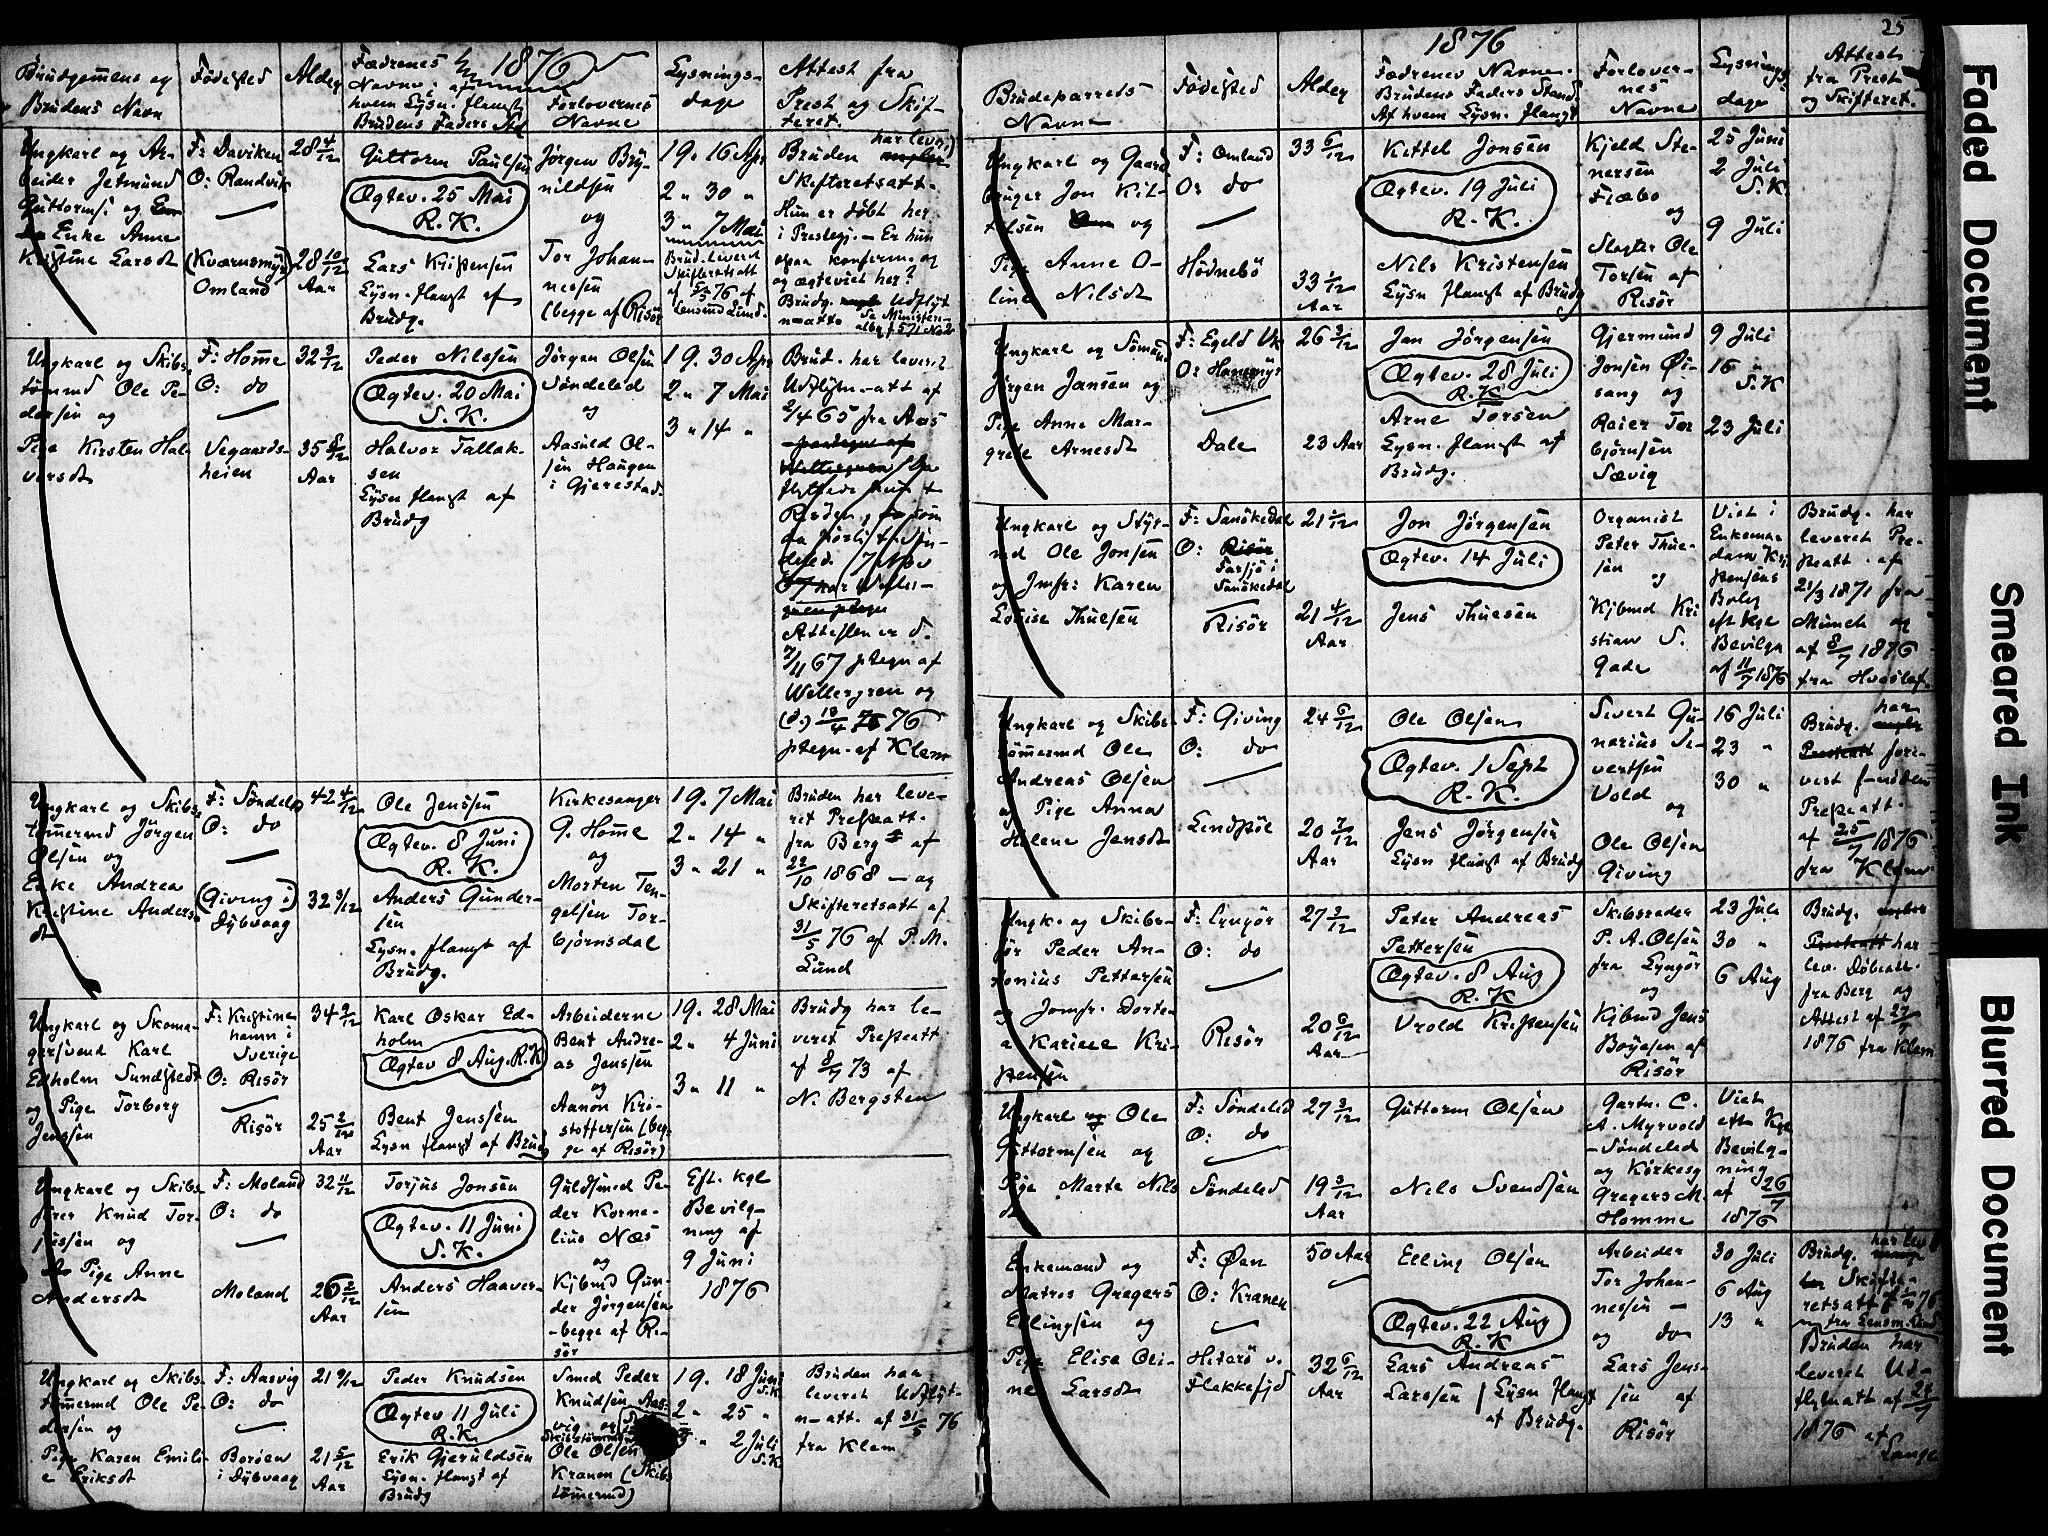 1876
Brudgomens og
Brudens Navn
Fødested
Alder
Fædrenes
Navne; af
hvem Lysn. flangt
Brudens Faders Std
Forlovernes
Navne
Lysnings-
dage
Attest fra
Prest og Skif-
teret.
Ungkarl og Ar-
beider Jetmund
Guttormss og
Enke Anne
Kristine Larsdt
F: Daviken
O: Randvik
(Kværnsmyr)
Omland
28 4/12
28 10/12
Aar
Guttorm Paulsen
Ægtev. 25 Mai
R. K.
Lars Kristensen
Lysn. flangt af
Brudg.
Jørgen Bry-
nildsen
og
Tor Johan-
nessen
(begge af Risør
19. 16 Apr
2 " 30 "
3 " 7 Mai
Brud. leveret
Skifteretsatt
af 5/5 76 af
Lensmd Lund.
Bruden har lever.
Skifteretsatt.
Hun er døbt her
i Prestegj. – Er hun
ogsaa konfirm. og
og ægteviet her?
Brudg. Udflyt
n–att.
Ungkarl og Skibs-
tømmd Ole Pe-
dersen og
Pige Kirsten Hal-
vorsdt
F: Home
O: do
Vegaards-
heien
32 3/12
35 8/12
Aar
Peder Nilssen
Ægtev. 20 Mai
S. K.
Halvor Tallak-
sen
Lysn flangt af
Brudg
Jørgen Olsen
Søndeled
og
Aasuld Ol-
sen Haugen
i Gjerestad.
19. 30 Apr
2 " 7 Mai
3 " 14 "
Brud. har leveret
Udflytn–att af
2/4 65 fra Aas
Attesten er d.
7/11 67 ptegn af
Wettergren og
(d.) 13/4 76
ptegn. af Klem
Ungkarl og Skibs
tømermd Jørgen
Olsen og
Enke Andrea
Kristine Anders-
dt
F: Søndeled
O: do
(Giving i)
Dybvaag
42 4/12
32 3/12
Ole Jenssen
Ægtev. 8 Juni
R. K.
Anders Gunder-
sen
Lysn. flangt af
Brudg.
Kirkesanger
G. Home
og
Morten Ten-
gelsen Tor-
bjørnsdal
19. 7 Mai
2 " 14 "
3 " 21 "
Bruden har leve-
ret Presteatt.
fra Berg af
22/10 1868 – og
Skifteretsatt af
31/5 76 af P. M.
Lund
Ungkarl og Skoma-
gersvend Karl
Edholm Sundstedt
og Pige Torborg
Jenssen
F: Kristine-
hamn i
Sverige
O: Risør
Risør
34 9/12
25 2/12
Aar
Karl Oskar Ed-
holm
Ægtev 8 Aug. R. K
Bent Jenssen
Lysn flangt af Brudg
Arbeiderne
Bent Andre-
as Jenssen
og
Aanon Kri-
stoffersen (beg-
ge af Risør)
19. 28 Mai
2 " 4 Juni
3 " 11 "
Brudg har le-
veret Presteatt
af 8/7 73 af
N. Bergsten
Ungkarl og Skibs
fører Knud Tor-
jussen og
Pige Anne
Andersdt
F: Moland
O: do
Moland
32 11/12
26 2/12
Aar
Torjus Jonsen
Ægtev. 11 Juni
S. K.
Anders Haaver-
sen
Guldsmed Pe-
der Korne-
lius Næs
og
Kjbmd Gun-
der Jørgensen
– begge af Ri-
sør
Eft. kgl
Bevilg-
ning af
9 Juni
1876
Ungkarl og Skibs
tømermd Ole Pe-
dersen og
Pige Karen Emili-
e Eriksdt
F: Aasvig
O: do
Borøen
i Dybvaag
21 9/12
21 5/12
Aar
Peder Knudsen
Ægtev 11 Juli
R. K.
Erik Gjeruldsen
Lysn. flangt af
Brudg
Smed Peder
Knudsen Aas-
vig og
Ole Olsen
Kranen (Skibs
tømermd)
19. 18 Juni
S.K
2 " 25 "
3 " 2 Juli
S.K
Bruden har
leveret Udflyt-
n–att. af 31/5 76
fra Klem
25
1876
Brudeparrets
Navne
Fødested
Alder
Fædrenes Navne.
Brudens Faders Stand
Af hvem Lysn. flangt
Forlover-
nes
Navne
Lysnings
dage
Attest
fra Prest
og Skifteret.
Ungkarl og Gaard
bruger Jon Kit-
telsen og
Pige Anne O-
line Nilsdt
F: Omland
O: do
Hødnebø
33 6/12
33 1/12
Aar
Kittel Jonsen
Ægtev. 19 Juli
R. K.
Nils Kristensen
Lysn flangt af Brudg
Kjeld Ste-
nersen
Fiæbo
og
Slagter Ole
Torsen af
Risør
25 Juni
2 Juli
S. K
9 Juli
Ungkarl og Sømand
Jørgen Jansen og
Pige Anne Mar-
grete Arnesdt
F: Egeld Vk
O: Hammyr
Dale
26 3/12
23 Aar
Jan Jørgensen
Ægtev. 28 Juli
R. K
Arne Torsen
Lysn. flangt af
Brudg.
Gjermund
Jonsen Øi-
sang og
Reier Tor
bjørnsen
Sævig
9 Juli
16 "
S. K
23 Juli
Ungkarl og Styr-
md Ole Jonsen
og Jmfr: Karen
Lovise Thuesen
F: Sanøkedal
O: Risør
Farsjø i
Sanøkedal
Risør
21 1/12
21 4/12
Aar
Jon Jørgensen
Ægtev. 14 Juli
Jens Thuesen
Organist
Peter Thue-
sen
og
Kjbmd Kri
stian S.
Gade
Viet i
Enkema-
dam Kri
stensens
Bolig
eft kgl
Bevilgn
af 11/7 1876
Brudg. har
leveret Pre-
steatt. af
21/3 1871 fra
Munch og
af 8/7 1876
fra Hvoslef.
Ungkarl og Skibs
tømermd Ole
Andreas Olsen
og Pige Anna
Helene Jensdt
F: Giving
O: do
Lindstøl
24 6/12
20 7/12
Aar
Ole Olsen
Ægtev. 1 Sept
R. K.
Jens Jørgensen
Lysn flangt af Brudg
Sivert Gu-
narius Si-
vertsen
Vold
og
Ole Olsen
Giving
16 Juli
23 "
30 "
Brudg. har
Presteatt.
af 25/7 1876
fra Klem
Ungk. og Skibs-
før Peder An-
tonius Pettersen
og Jomfr. Dorte-
a Karine Kri-
stensen
F: Lyngør
O: do
Risør
27 3/12
20 6/12
Aar
Peter Andreas
Pettersen
Ægtev. 8 Aug
R. K
Vrold Kristensen
Skibsreder
P. A. Olsen
fra Lyngør
og
Kjbmd Jens
Boyesen af
Risør
23 Juli
30 "
6 Aug
Brudg.
Presteatt har
lev. Døbeatt.
fra Berg og
Attest af 27/7
1876 fra Klem
Ungkarl og Ole
Guttormsen og
Pige Marte Nils
dt
F: Søndeled
O: do
Søndeled
27 3/12
19 3/12
Aar
Guttorm Olsen
Nils Svendsen
Gartn. C.
A. Myrvold
– Søndeled
og Kirkesg
Gregers M.
Homme
Viet
eft Kgl
Bevilg-
ning
af 26/7
1876
Enkemand og
Matros Gregers
Ellingsen og
Pige Elise Oli-
ne Larsdt
F: Øen
O: Kranen
Hiterø v.
Flekkefjd
50 Aar
32 6/12
Aar
Elling Olsen
Ægtev. 22 Aug
R. K
Lars Andreas
Larssen / Lysn flangt
af Brudg.
Arbeider
Tor Johan-
nessen –
og do
Lars Jens-
sen af
Risør
30 Juli
6 Aug
13 "
Brudg. har lev
Skifte-
retsatt
fra Lensm. Lund
Bruden har
leveret Ud-
flytnatt af 24/7
1876 af
Lange
Faded Document
Smeared Ink
Blurred Document